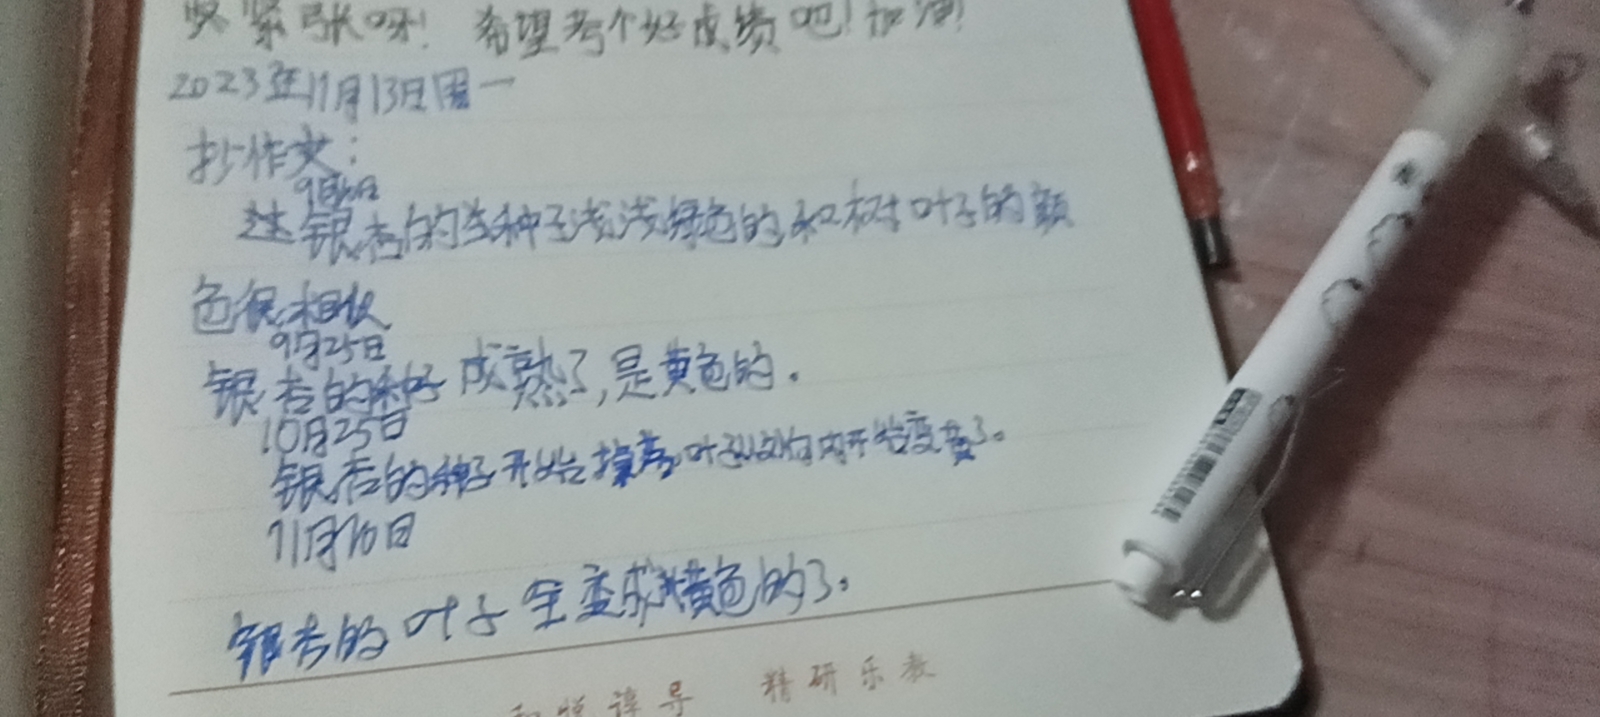 紧张呀！希望考个好成绩吧！加油！
2023年11月13日周一
抄作文：
9月10日
这银杏的当种子浅浅绿色的和树叶子的颜
色很相似
9月25日
银杏的种子成熟了，是黄色的。
10月25日
银杏的种子开始掉落叶子以内开始变黄了。
11月10日
银杏的叶子全变成黄色的了。
谆导 精研乐教